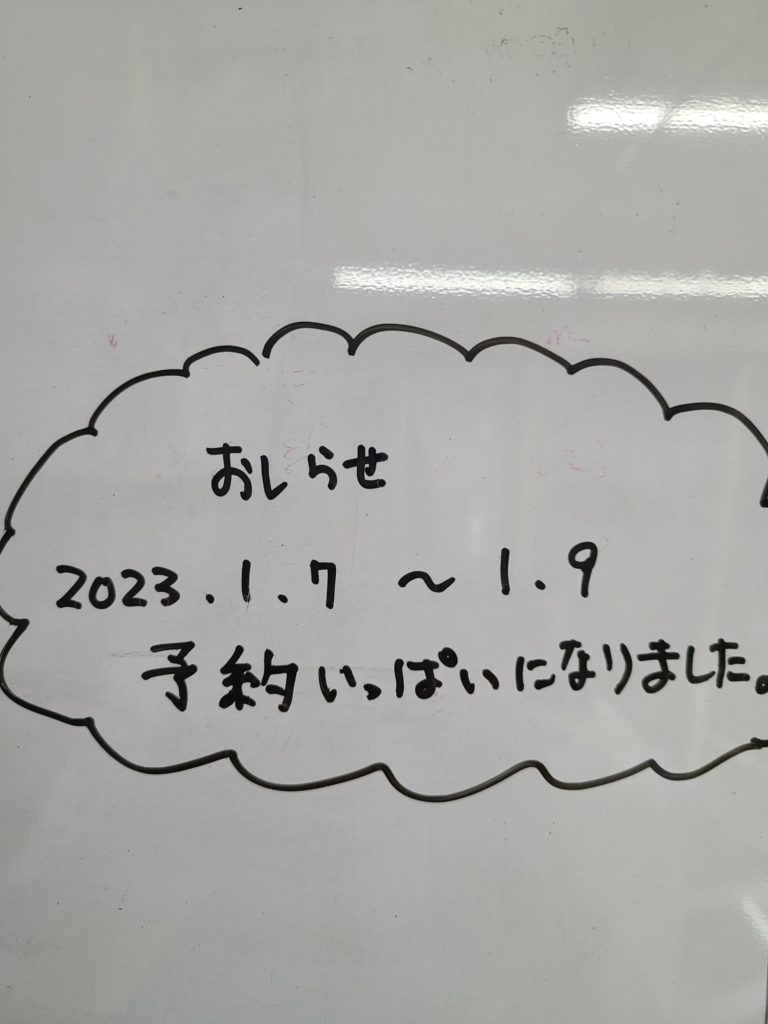 おしらせ
2023.1.7 ～ 1.9
予約いっぱいになりました。